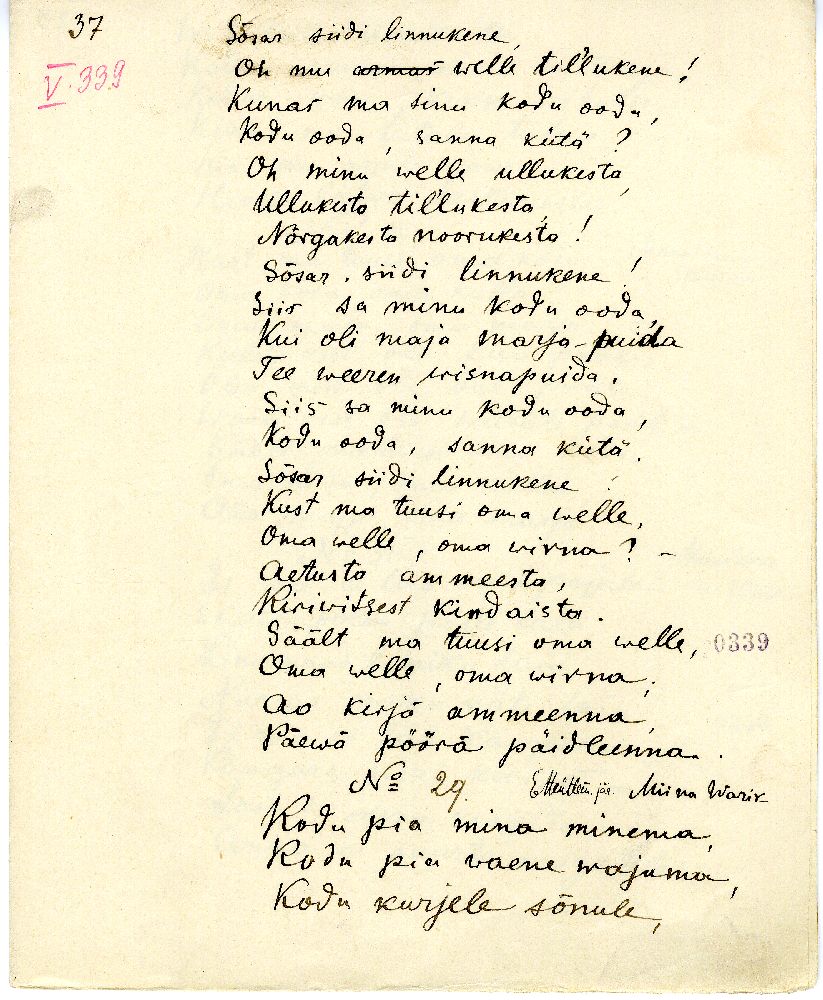 37
V. 339
Sõsar siidi linnukene,
Oh mu armas welle til'lukene!
Kunas ma sinu kodu ooda,
Kodu ooda, sanna kütä?
Oh minu welle ullukesta,
Ullukesta til'lukesta,
Nõrgakesta noorukesta!
Sõsar, siidi linnukene!
Siis sa minu kodu ooda,
Kui oli maja marja-puida
Tee weeren wisnapuida.
Siis sa minu kodu ooda,
Kodu ooda, sanna kütä.
Sõsar siidi linnukene!
Kust ma tunsi oma welle,
Oma welle, oma wirna? –
Aetusta ammeesta,
Kiriwitsest kindaista.
Säält ma tunsi oma welle,
0339
Oma welle, oma wirna,
Ao kirjä ammeenna,
Päewä pöörä päidleenna.
No 29. Miina Warik
Kodu pia mina minema,
Kodu pia waene wajuma,
Kodu kurjele sõnule,